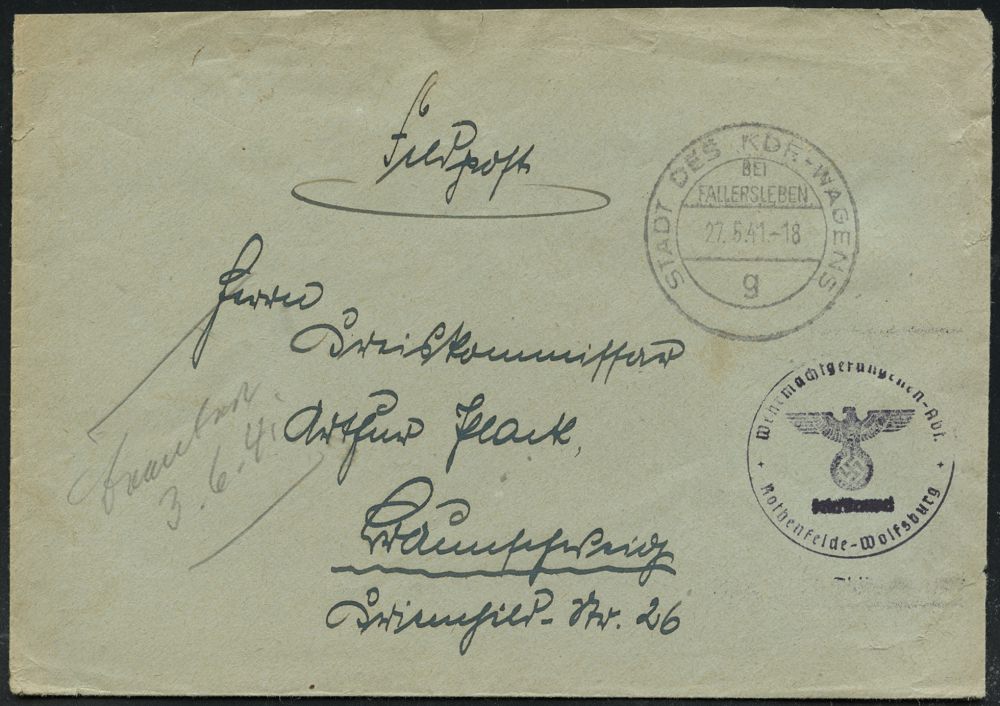 Feldpost
STADT DES KDF-WAGENS
BEI
FALLERSLEBEN
27.5.41.-18
g
Herrn
Kreiskommissar
Arthur Plack,
Braunschweig
Krimhild-Str. 26
3.6.41.
Wehrmachtgefangenen-Abt.
Rothenfelde-Wolfsburg